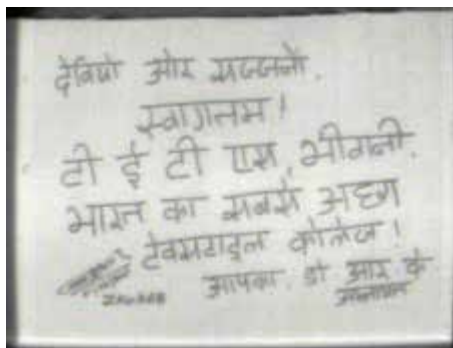 देवियो और सज्जनो.
स्वागतम!
टी ई टी एस, भीवानी.
भारत का सबसे अच्छा
टेक्सटाइल कोलेज!
आपका. डा आर के